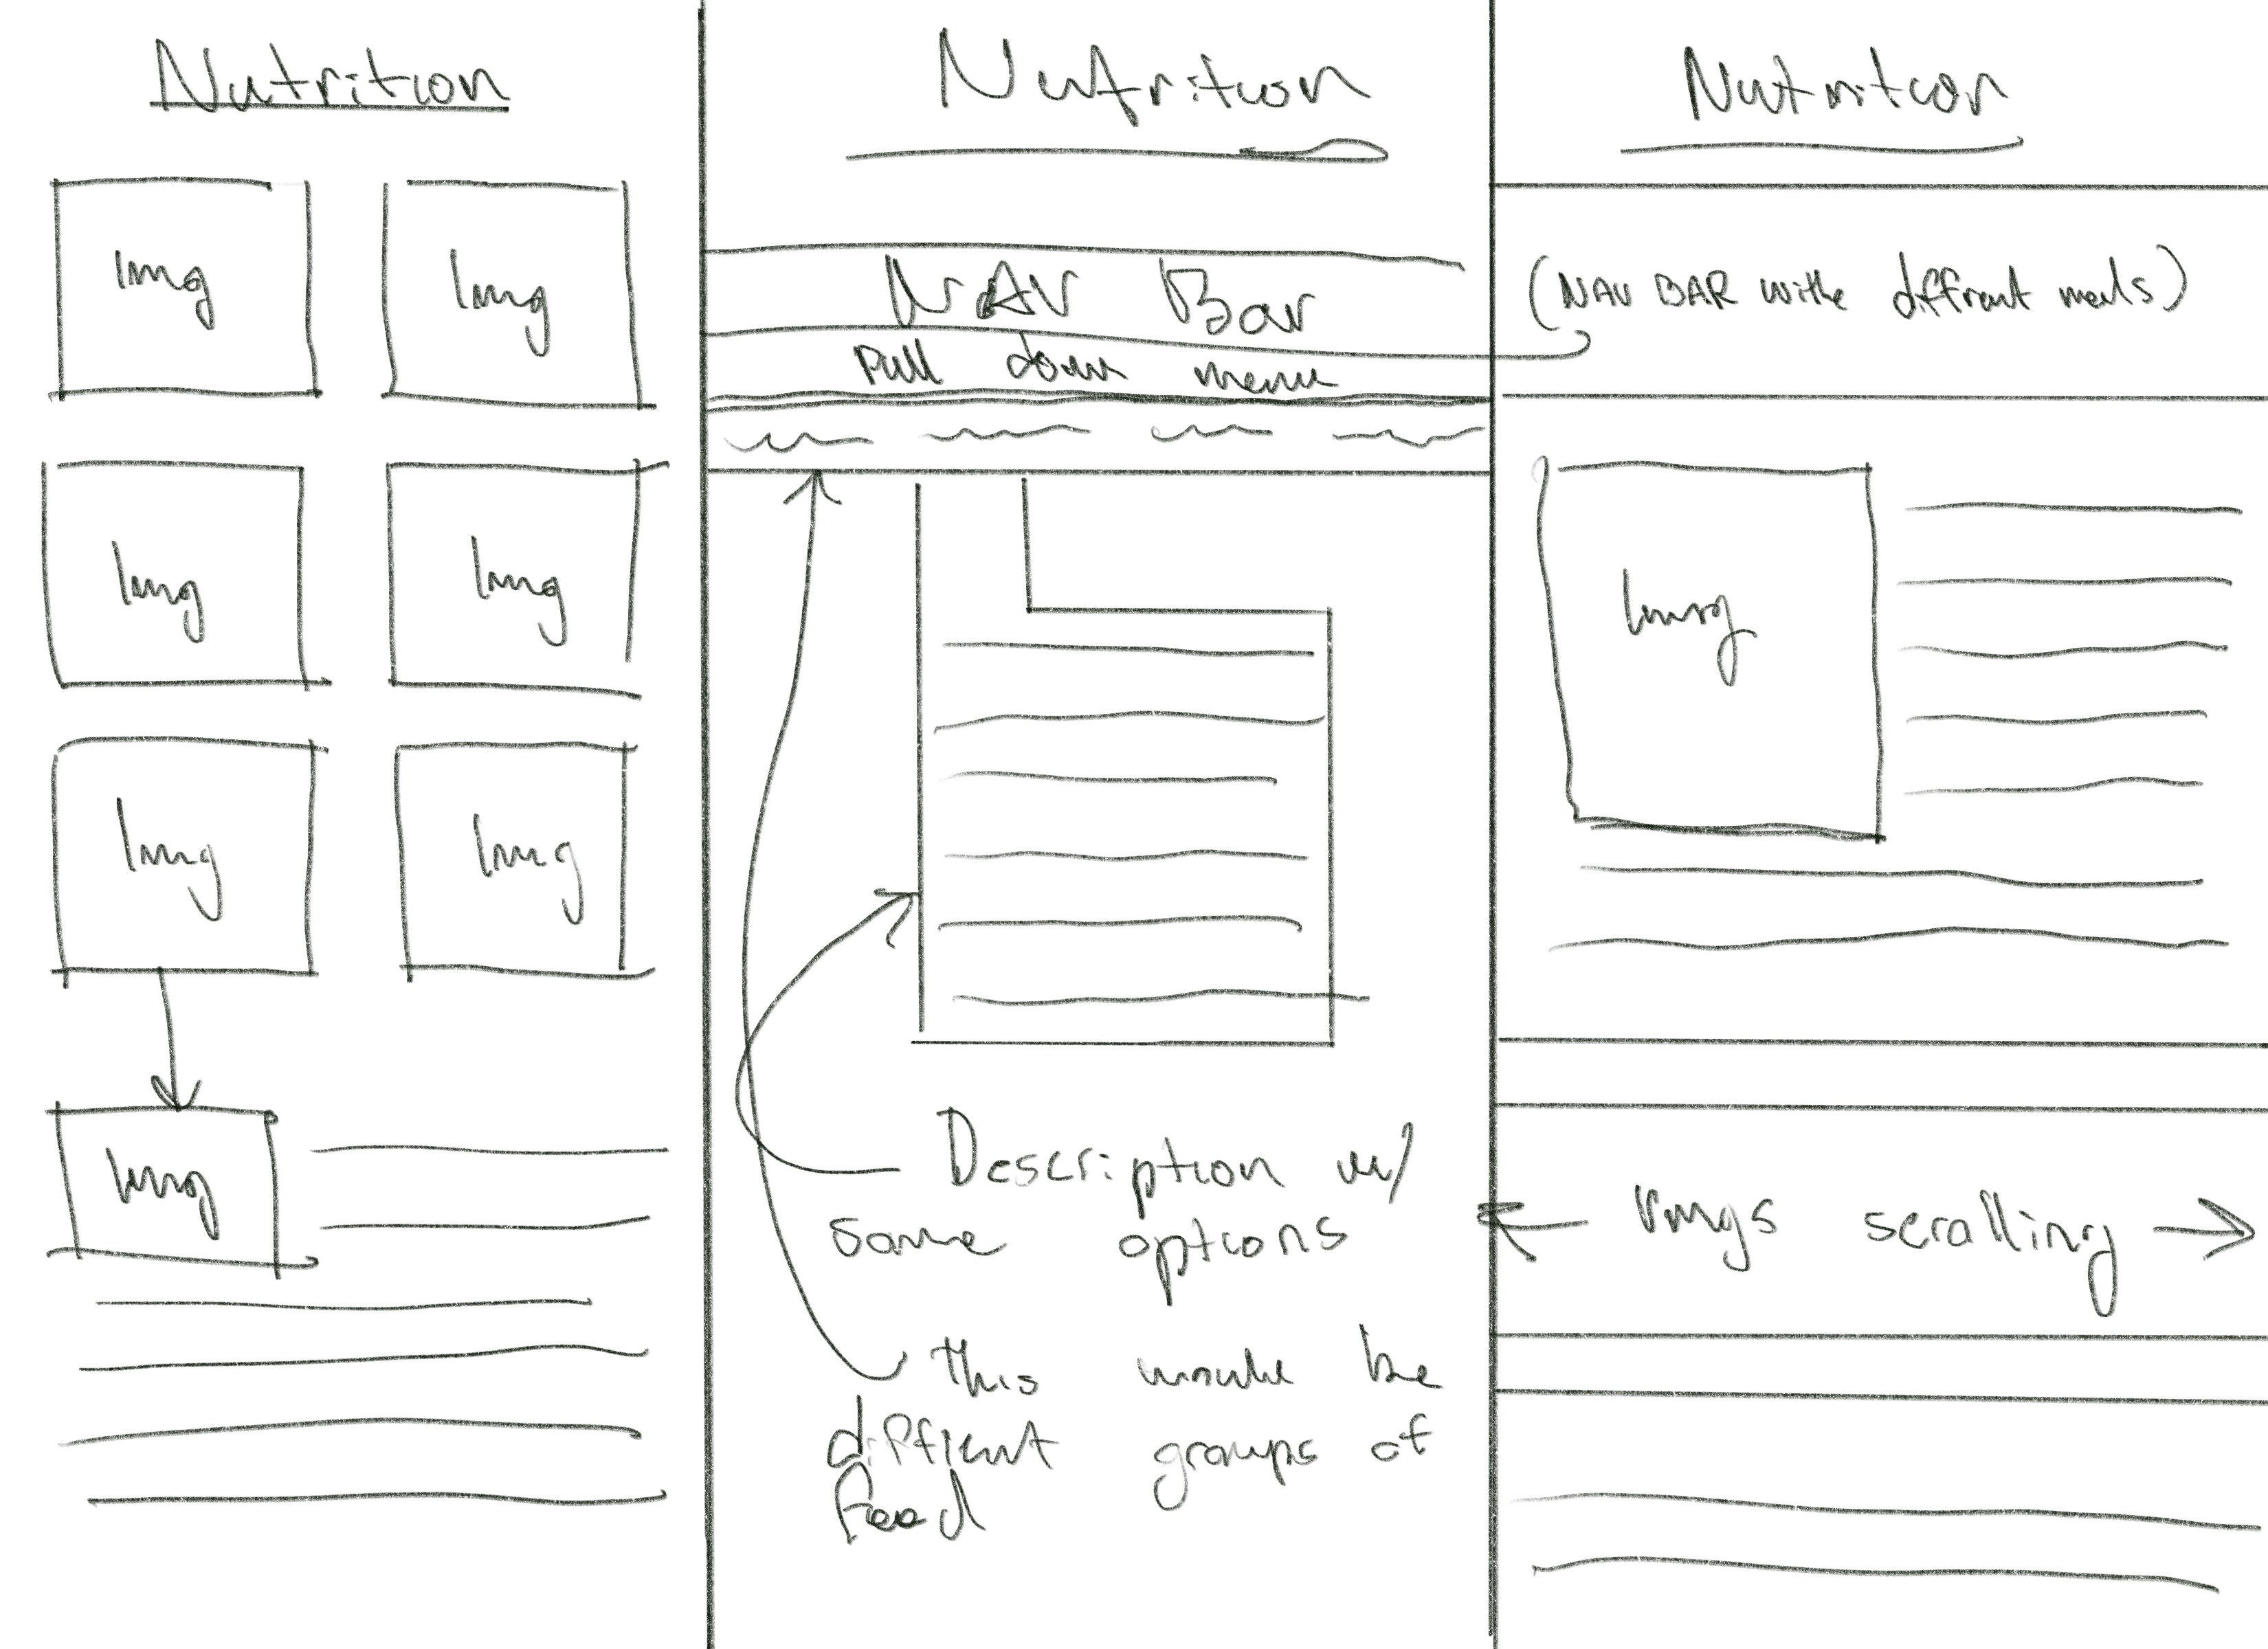 Nutrition
Img Img
Img Img
Img Img
Img
Nutrition
NAV Bar
Pull down menu
Description w/
same options
this would be
diffient groups of
food
Nutrition
(NAV BAR withe diffrent meals)
Img
Imgs scrolling